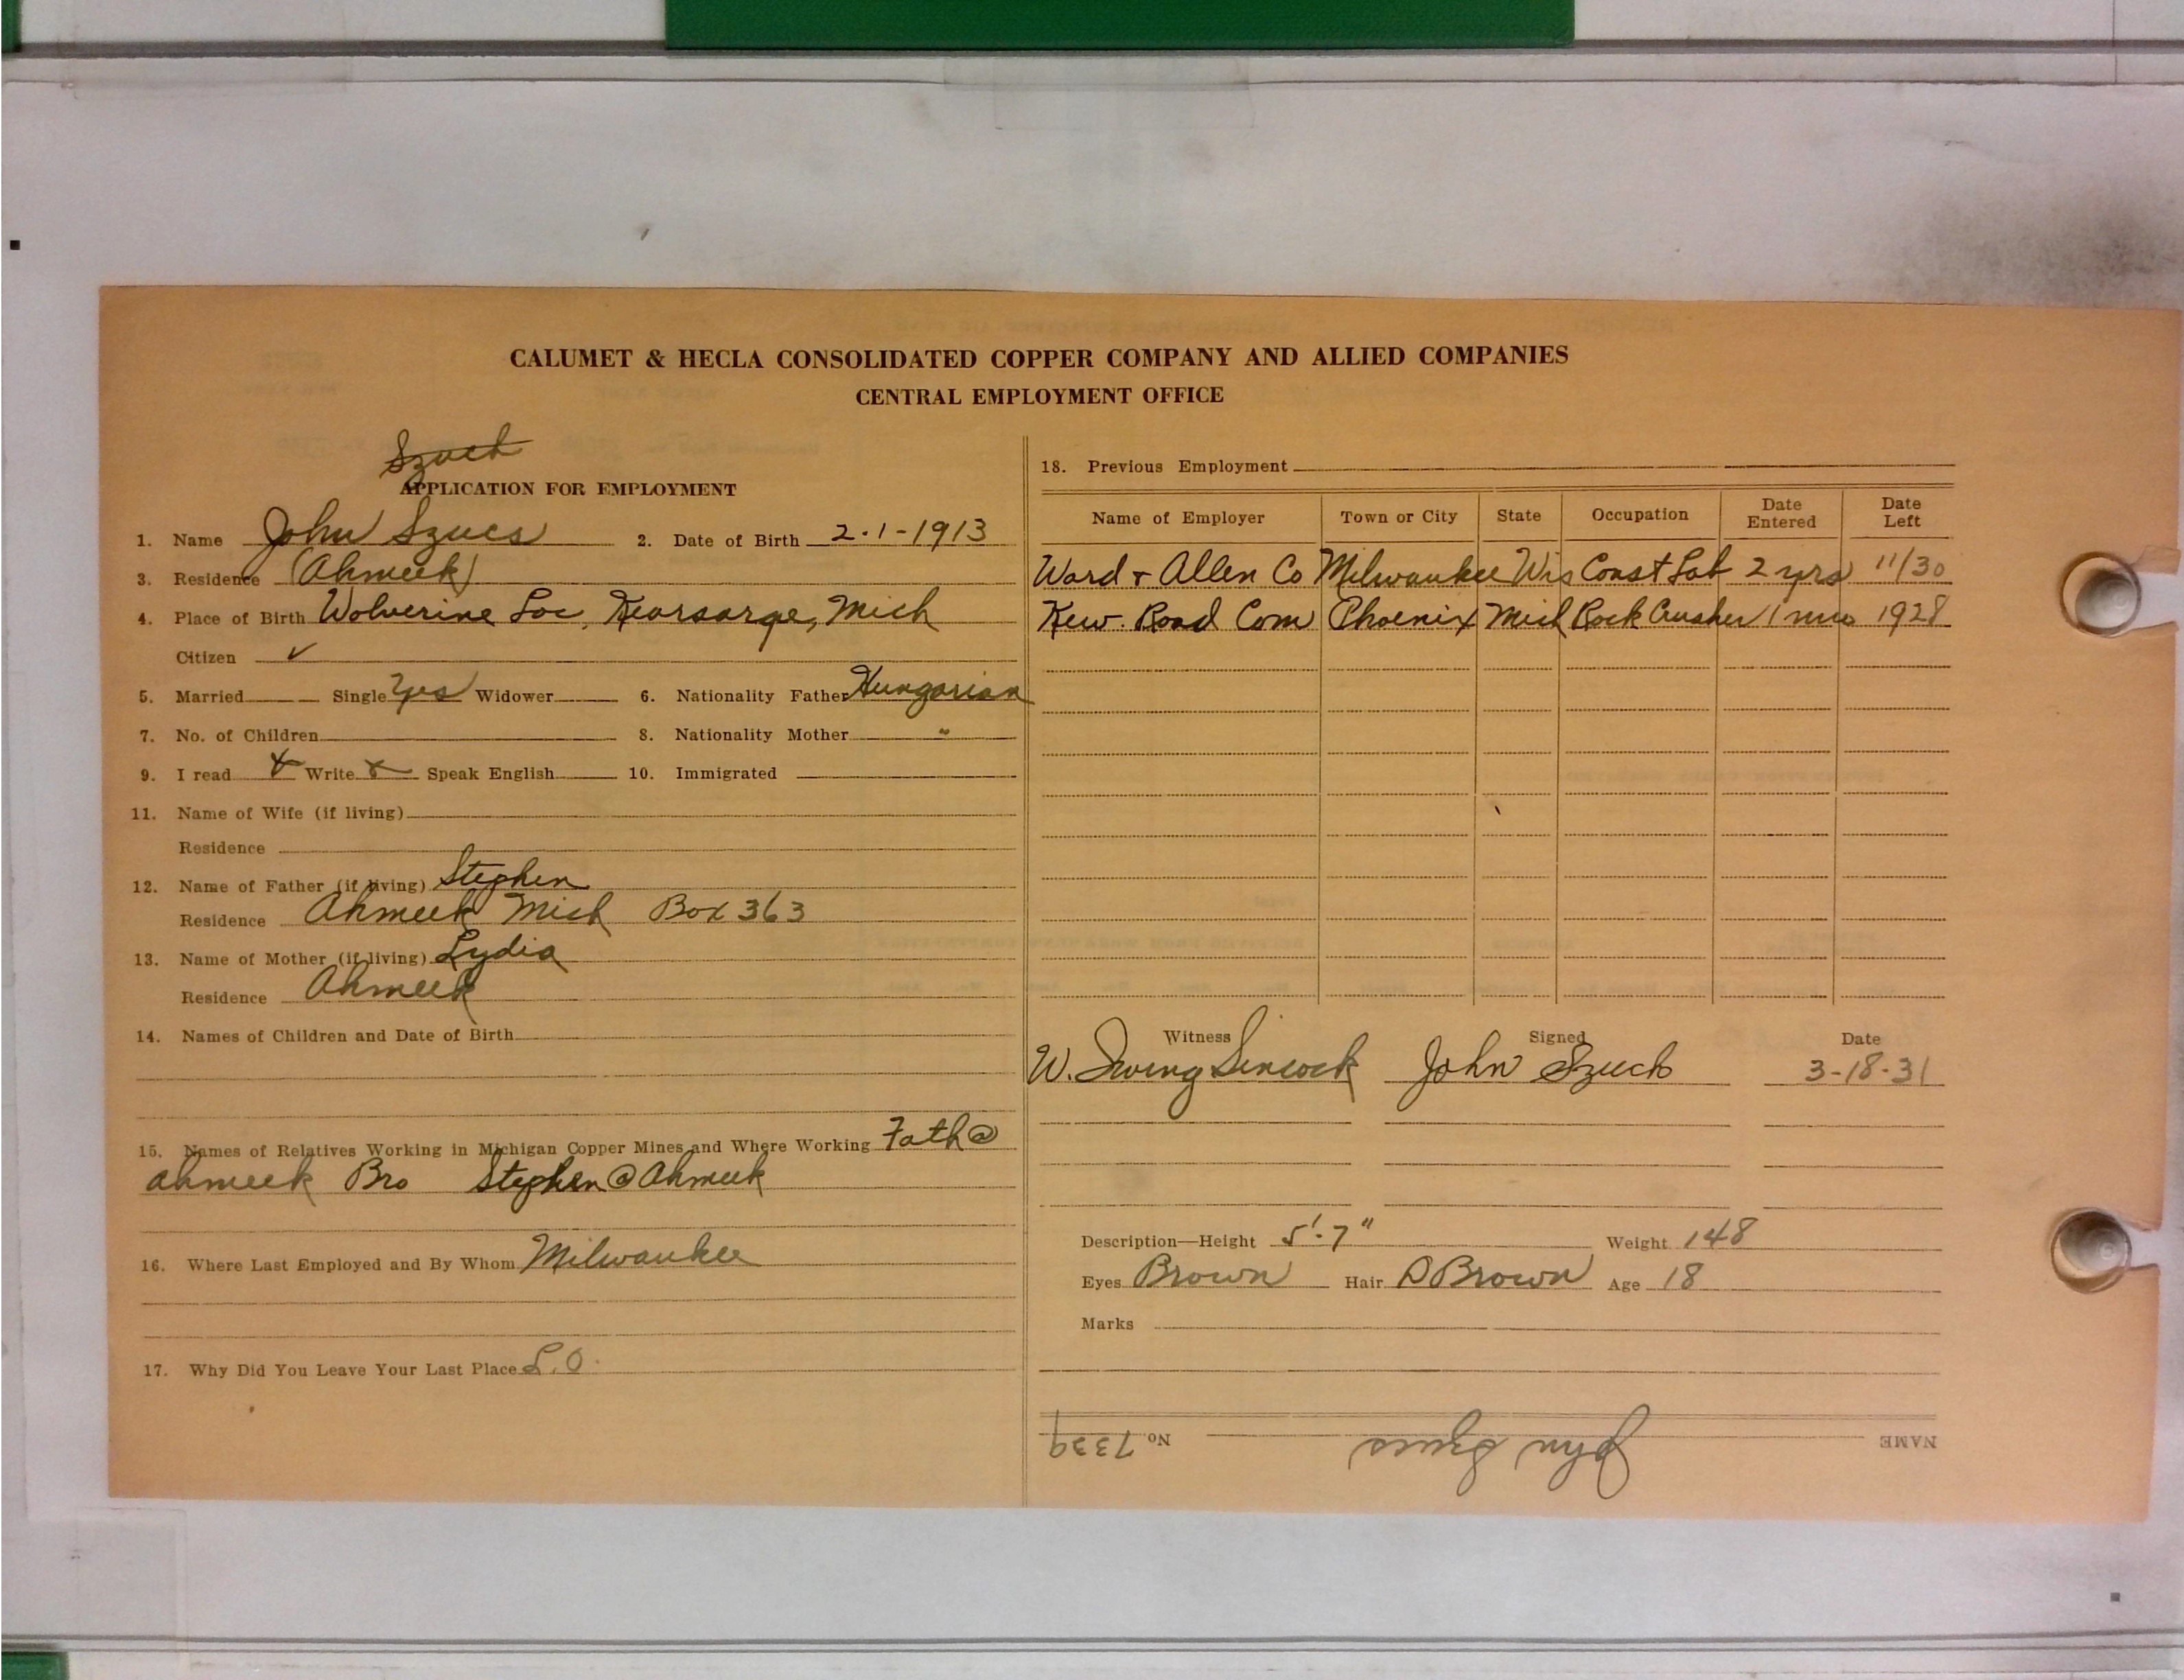 CALUMET & HECLA CONSOLIDATED COPPER COMPANY AND ALLIED COMPANIES
CENTRAL EMPLOYMENT OFFICE
Szuch
APPLICATION FOR EMPLOYMENT
1. Name John Szucs 2. Date of Birth 2-1-1913
3. Residence (Ahmeek)
4. Place of Birth Wolverine Loc, Kearsarge, Mich
Citizen ✓
5. Married Single Yes Widower 6. Nationality Father Hungarian
7. No. of Children 8. Nationality Mother "
9. I read x Write x Speak English 10. Immigrated
11. Name of Wife (if living)
Residence
12. Name of Father (if living) Stephen
Residence Ahmeek Mich Box 363
13. Name of Mother (if living) Lydia
Residence Ahmeek
14. Names of Children and Date of Birth
15. Names of Relatives Working in Michigan Copper Mines and Where Working Fath @
Ahmeek Bro Stephen @ Ahmeek
16. Where Last Employed and By Whom Milwaukee
17. Why Did You Leave Your Last Place L.O.
18. Previous Employment
Name of Employer Town or City State Occupation Date Entered Date Left
Ward + Allen Co Milwaukee Wis Const Lab 2 yrs 11/30
Kew. Road Com Phoenix Mich Rock Crusher 1 mo 1928
Witness Signed Date
W. Irving Sincock John Szuch 3-18-31
Description—Height 5'-7" Weight 148
Eyes Brown Hair D Brown Age 18
Marks
NAME John Szucs No. 7339